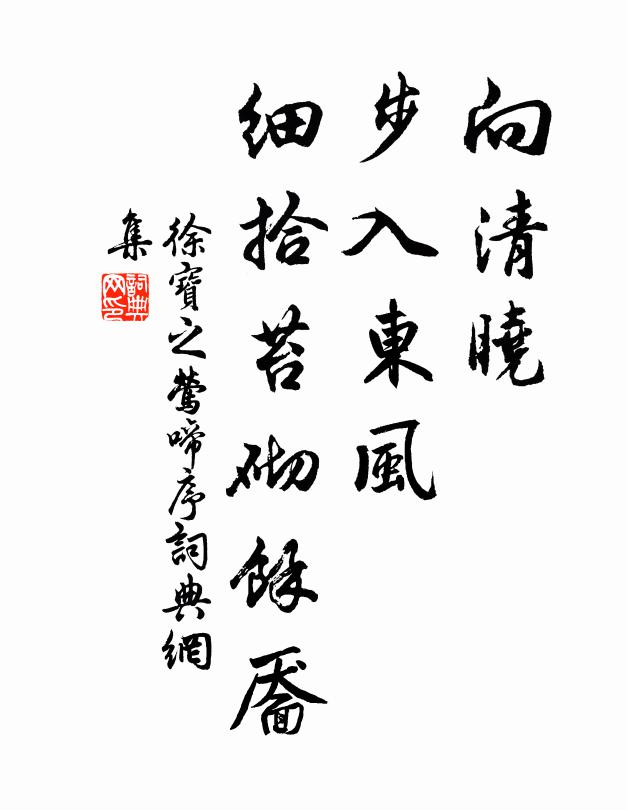 向清曉
步入東風
細拾苔砌餘靥
徐寶之鶯啼序詞典網
集
詞典
网印